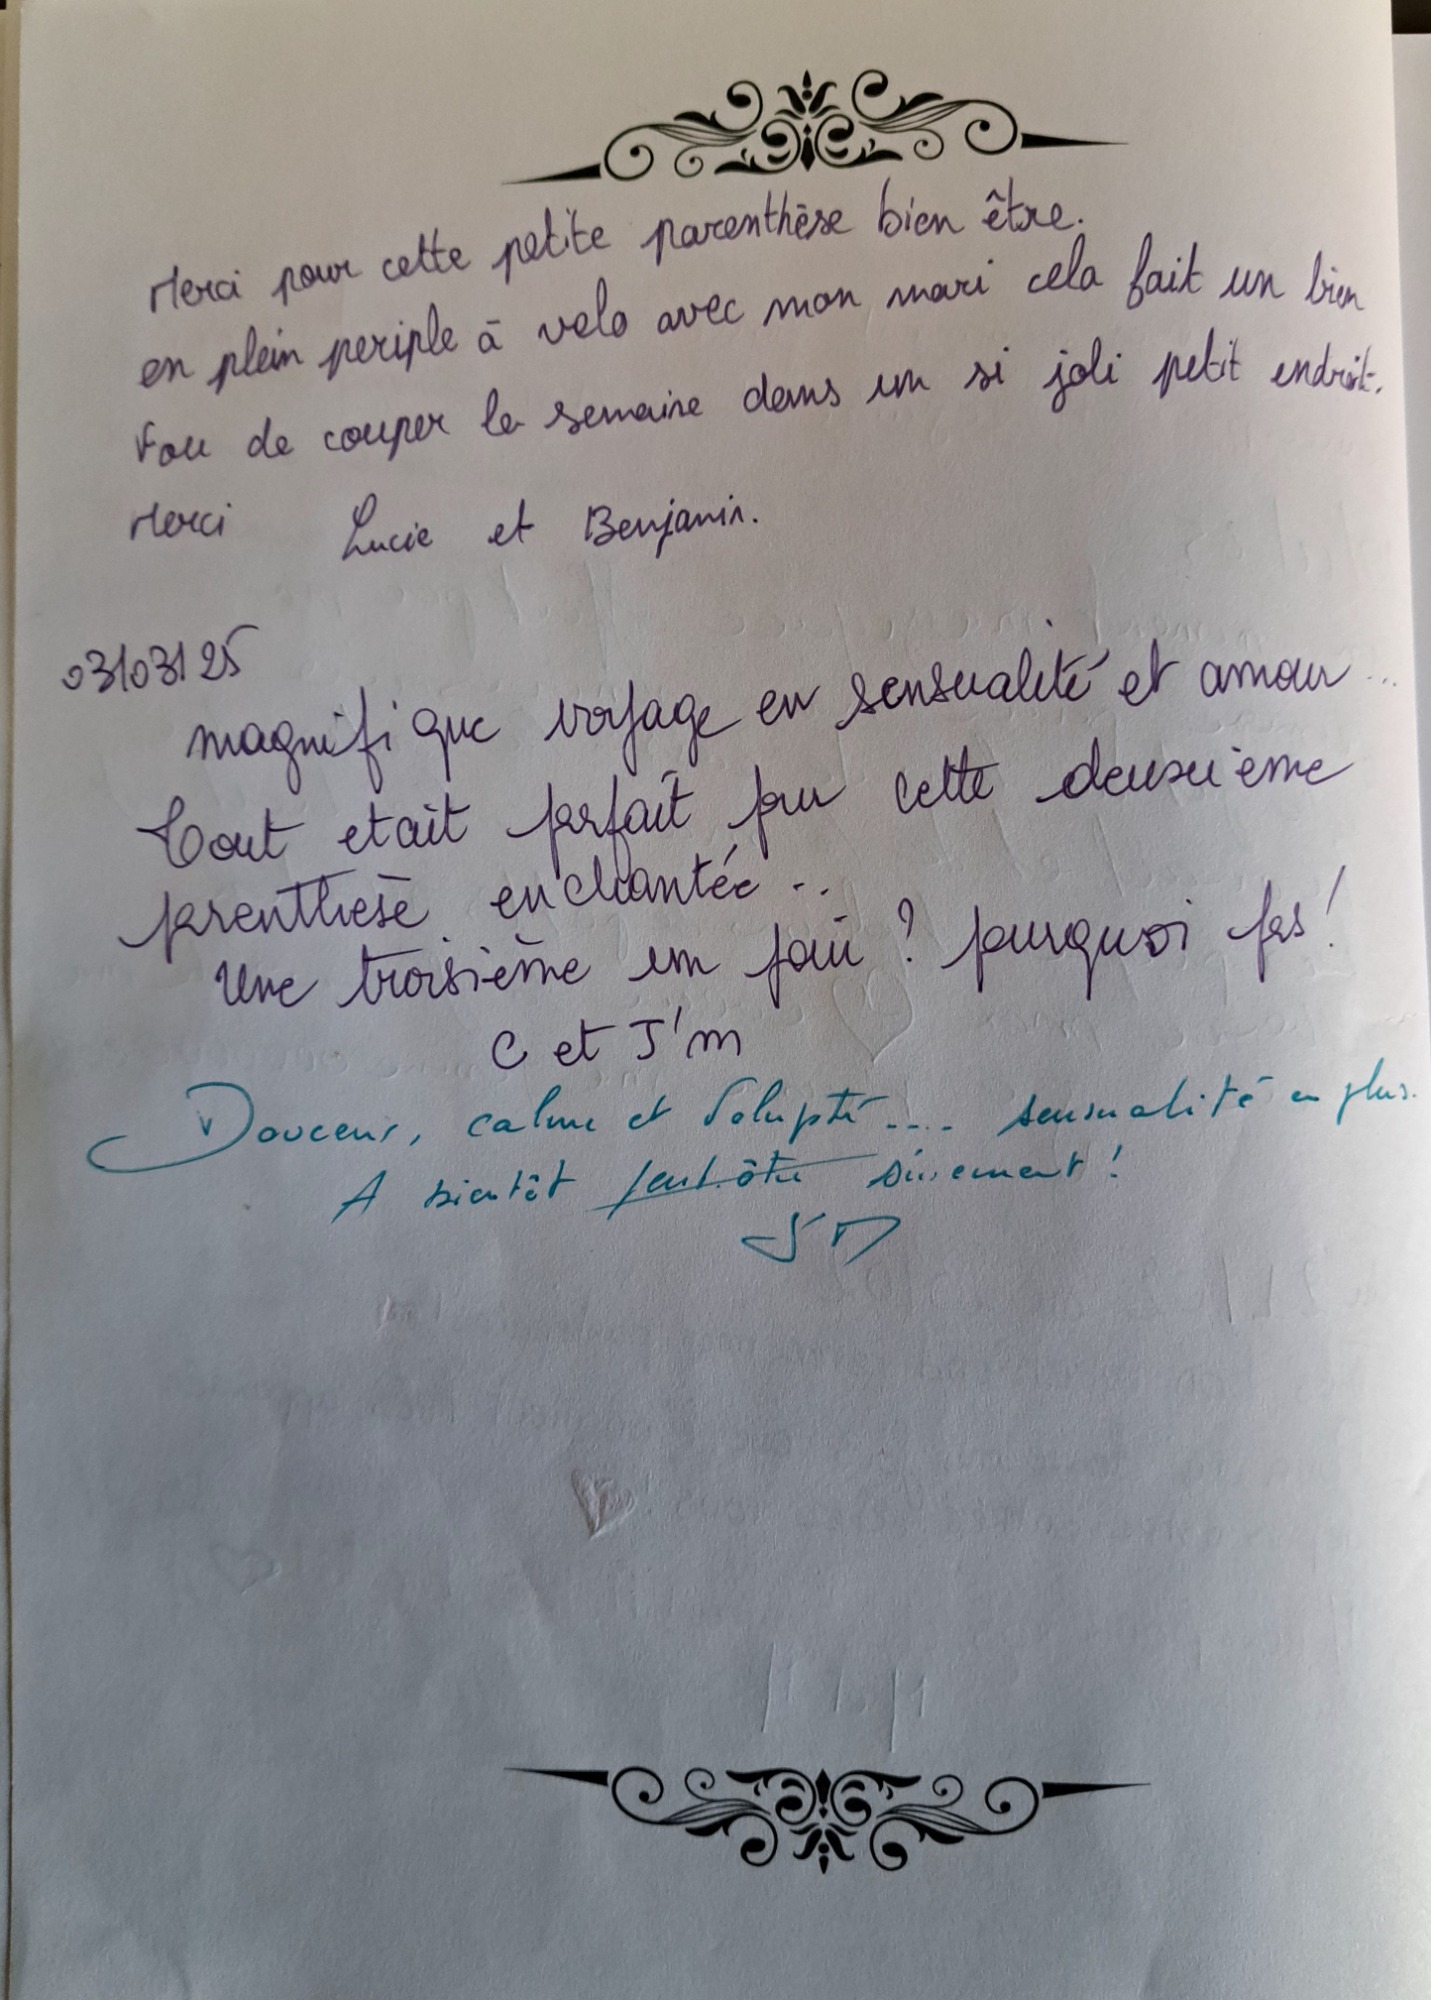 Merci pour cette petite parenthèse bien être.
en plein periple à velo avec mon mari cela fait un bien
fou de couper la semaine dans un si joli petit endroit.
Merci Lucie et Benjamin.
03/03/25
magnifique voyage en sensualité et amour...
Tout etait parfait pour cette deuxième
parenthèse enchantée..
Une troisième un jour ? pourquoi pas !
C et J'm
Douceur, calme et Volupté.... sensualité en plus.
A bientôt peut-être sûrement !